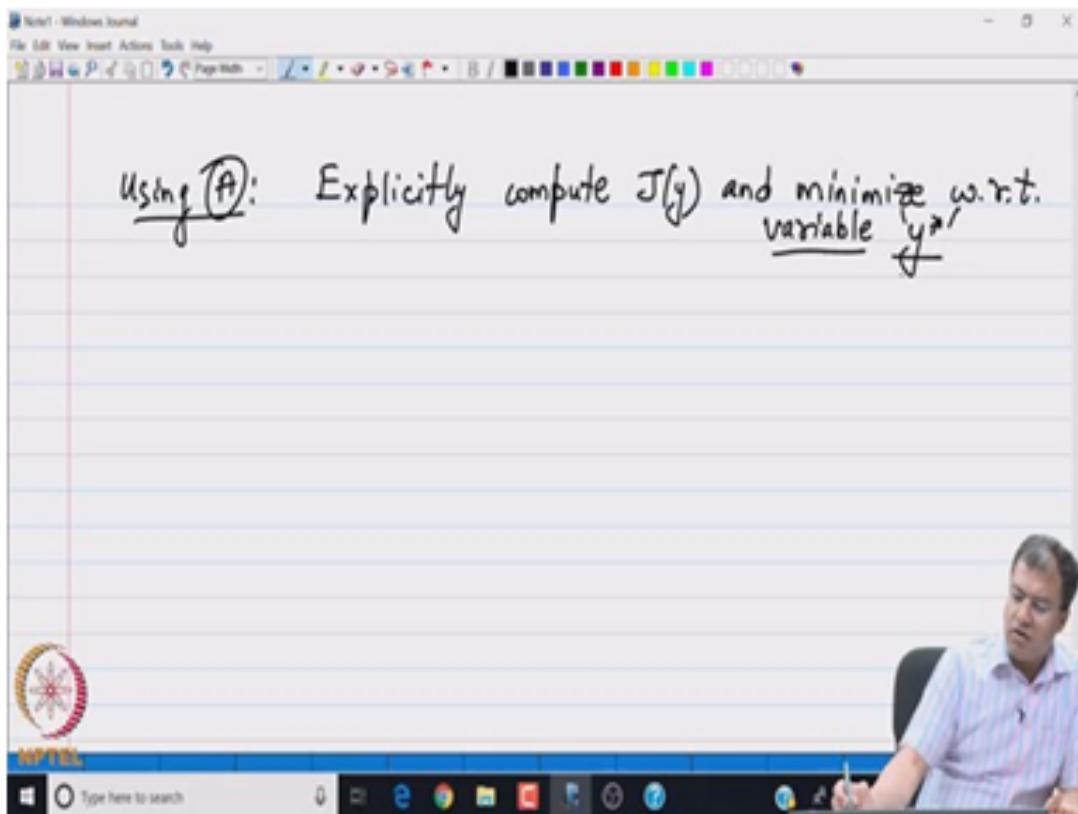 Note1 - Windows Journal
File Edit View Insert Actions Tools Help
Page Width
B I
Using (A): Explicitly compute J(y) and minimize w.r.t.
variable 'y*'
NPTEL
Type here to search